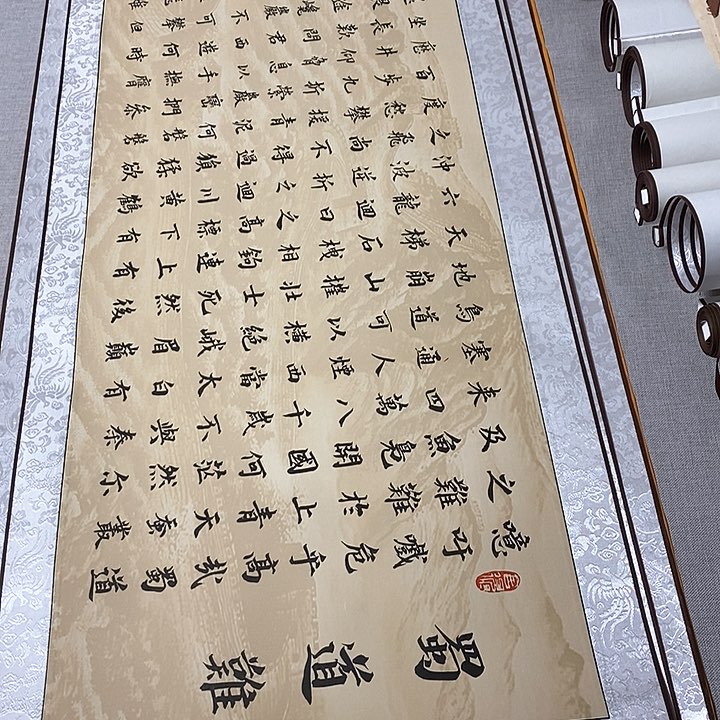 蜀道難
噫吁嚱危乎高哉蜀道
之難難於上青天蠶叢
及魚鳧開國何茫然尔
来四萬八千歲不與秦
塞通人煙西當太白有
鳥道可以橫絕峨眉巔
地崩山摧壯士死然後
天梯石棧相鈎連上有
六龍迴日之高標下有
冲波逆折之迴川黄鶴
之飛尚不得過猿猱欲
度愁攀援青泥何盤盤
百步九折縈巖巒捫參
歷井仰脅息以手撫膺
坐長歎問君西遊何時
巖不可攀